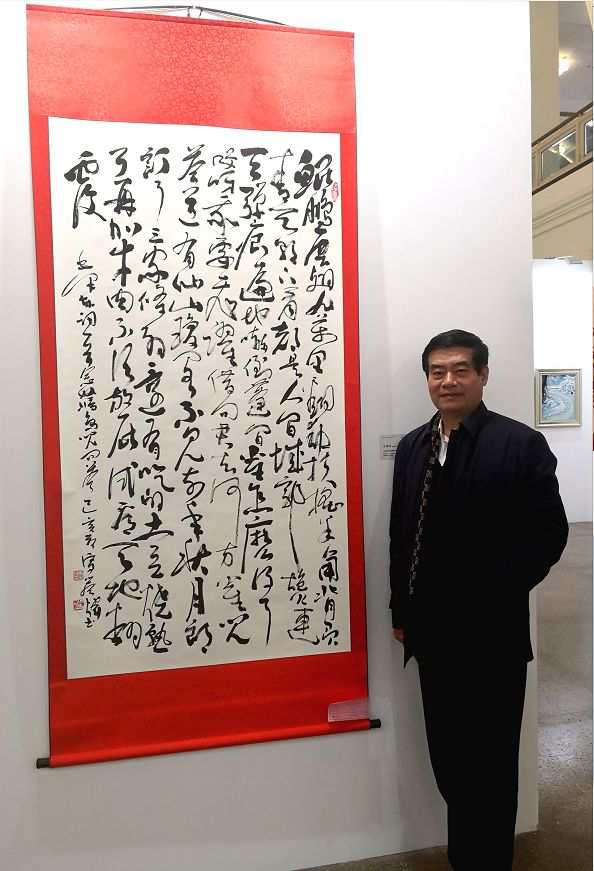 鲲鹏展翅九万里翻动扶摇羊角背负
青天朝下看都是人间城郭炮火连
天弹痕遍地吓倒蓬间雀怎么得了
哎呀我要飞跃借问君去何方雀儿
答道有仙山琼阁不见前年秋月朗
订了三家条约还有吃的土豆烧熟
了再加牛肉不须放屁试看天地翻
覆
毛泽东词一首念奴娇鸟儿问答己亥 书